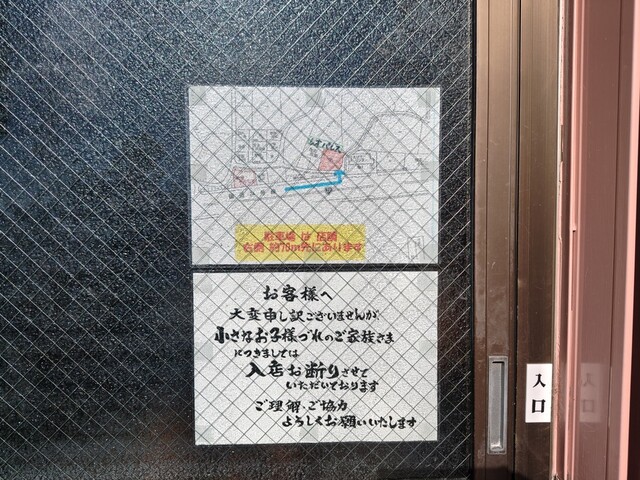 レオパレス
駐車場 は 店舗
右側 約70m先にあります
お客様へ
大変申し訳ございませんが
小さなお子様づれのご家族さま
につきましては
入店お断りさせて
いただいております
ご理解・ご協力
よろしくお願いいたします
入口